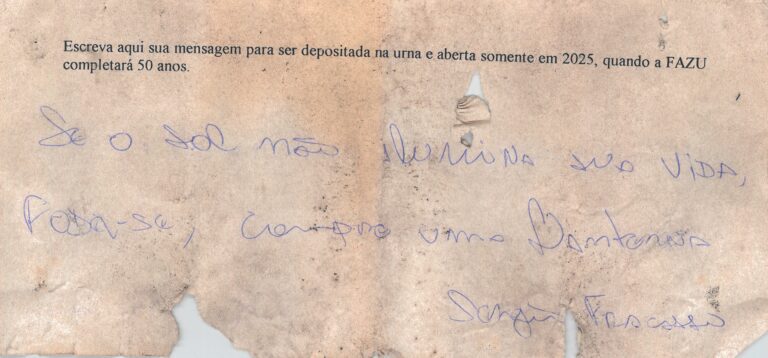 Escreva aqui sua mensagem para ser depositada na urna e aberta somente em 2025, quando a FAZU
completará 50 anos.
Se o sol não ilumina sua vida,
Foda-se, compre uma Lanterna
Sergio Fracasso